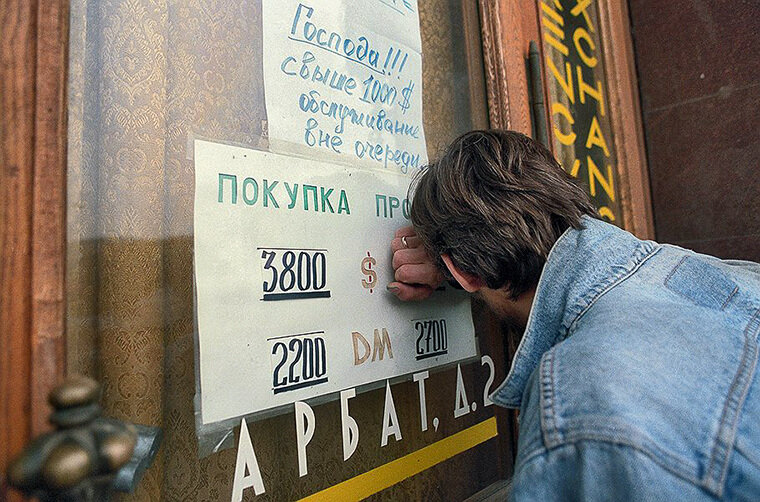 Господа!!!
свыше 1000$
обслуживание
вне очереди
ПОКУПКА ПРО
3800 $
2200 DM 2700
АРБАТ, Д. 2
XCHAN